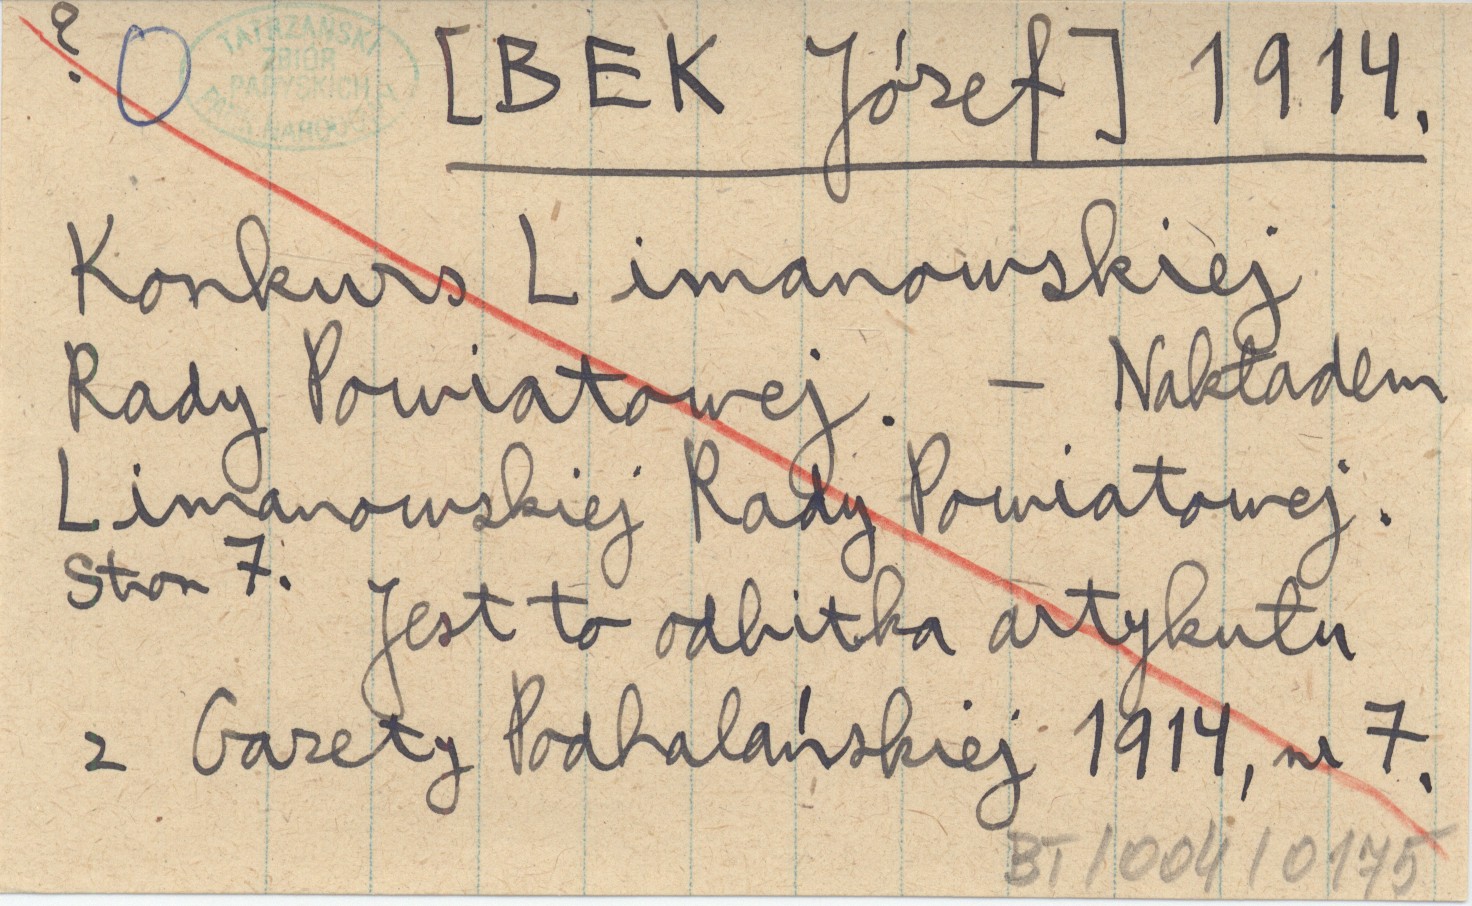 ?
TATRZAŃSKI
ZBIÓR
[BEK Józef] 1914.
Konkurs Limanowskiej
Rady Powiatowej. – Nakładem
Limanowskiej Rady Powiatowej.
Stron 7.
Jest to odbitka artykułu
z Gazety Podhalańskiej 1914, nr 7.
BT/004/0175